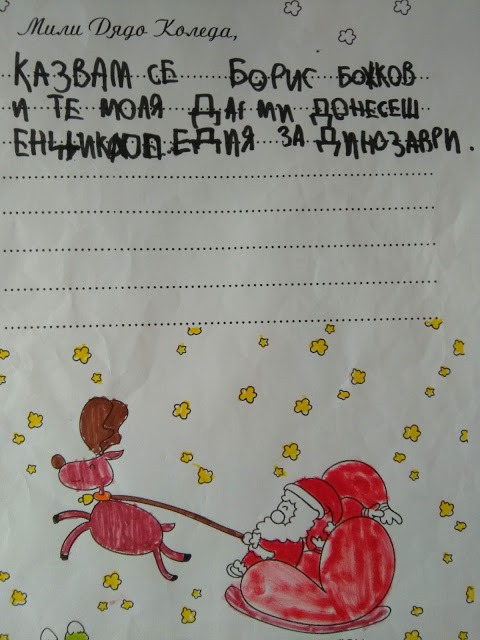 Мили Дядо Коледа,
КАЗВАМ СЕ БОРИС БОЖКОВ
И ТЕ МОЛЯ ДА МИ ДОНЕСЕШ
ЕНЦИКЛОПЕДИЯ ЗА ДИНОЗАВРИ.